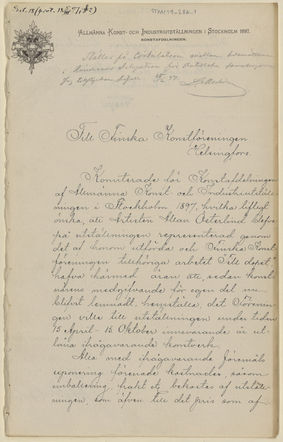 ALLMÄNNA KONST- OCH INDUSTRIUTSTÄLLNINGEN I STOCKHOLM 1897.
KONSTAFDELNINGEN.
Till Finska Konstföreningen
Helsingfors.
Komiterade för Konstafdelningen
af Allmänna Konst och Industriutställ-
ningen i Stockholm 1897, hvilka lifligt
önska, att Artisten Allan Österlind blefve
på utställningen representerad genom
det af honom utförda och Finska Konst-
föreningen tillhöriga arbetet
hafva härmed äran att, sedan konst-
närens medgifvande för egen del nu-
blifvit lemnadt, hemställa, det Förenin-
gen ville till utställningen under tiden
15 April - 15 Oktober innevarande år ut-
låna ifrågavarande konstverk.
Alla med ifrågavarande föremåls
exponering förenade kostnader, såsom
emballering, frakt etc bekostas af utställ-
ningen, som äfven till det pris som af